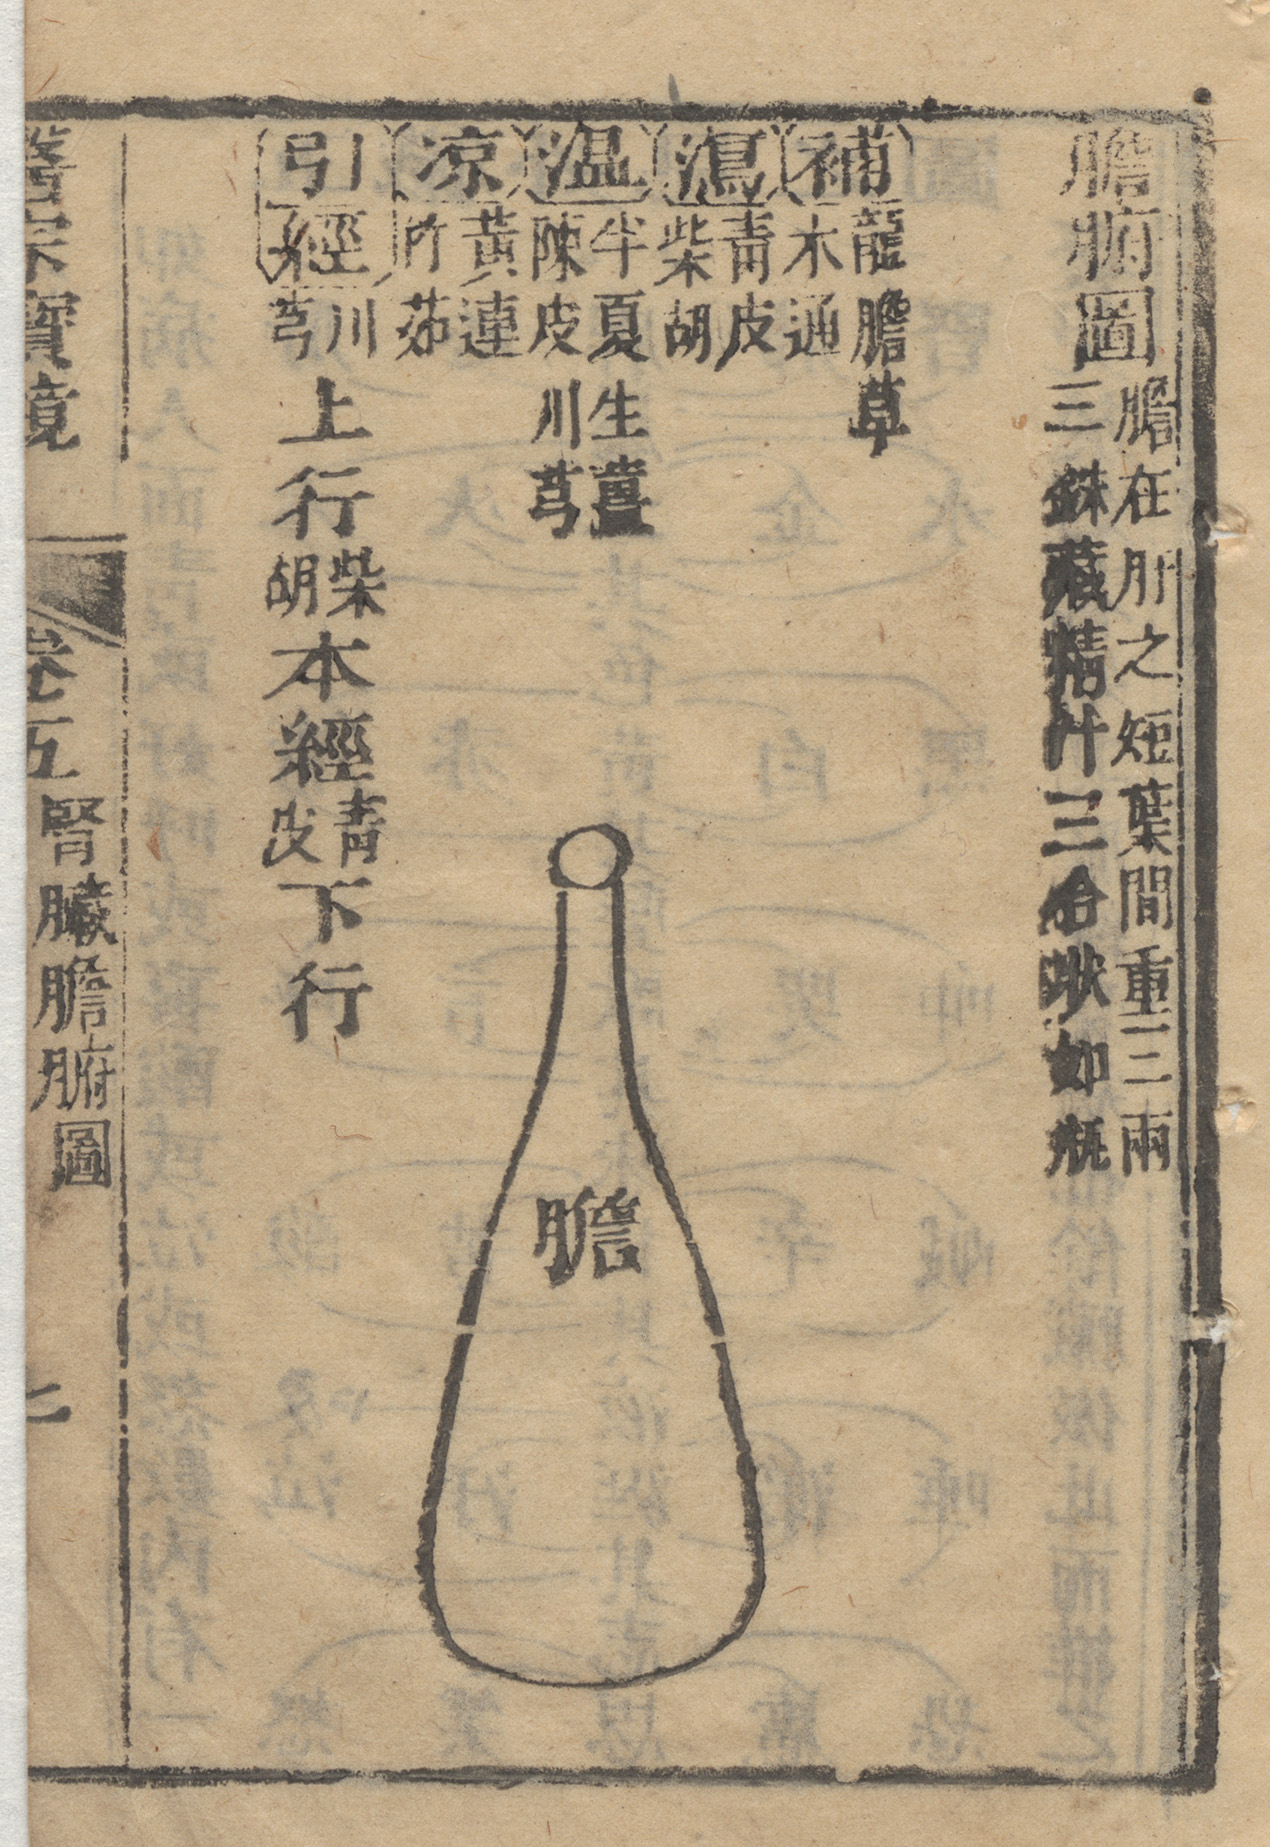 膽腑圖
膽在肝之短葉間重三兩
三銖藏精汁三合狀如瓶
補
龍膽草
木通
瀉
青皮
柴胡
温
半夏生薑
陳皮川芎
凉
黃連
竹茹
引經
川芎上行柴胡本經青皮下行
膽
醫宗寶鏡
卷五
腎臟膽腑圖